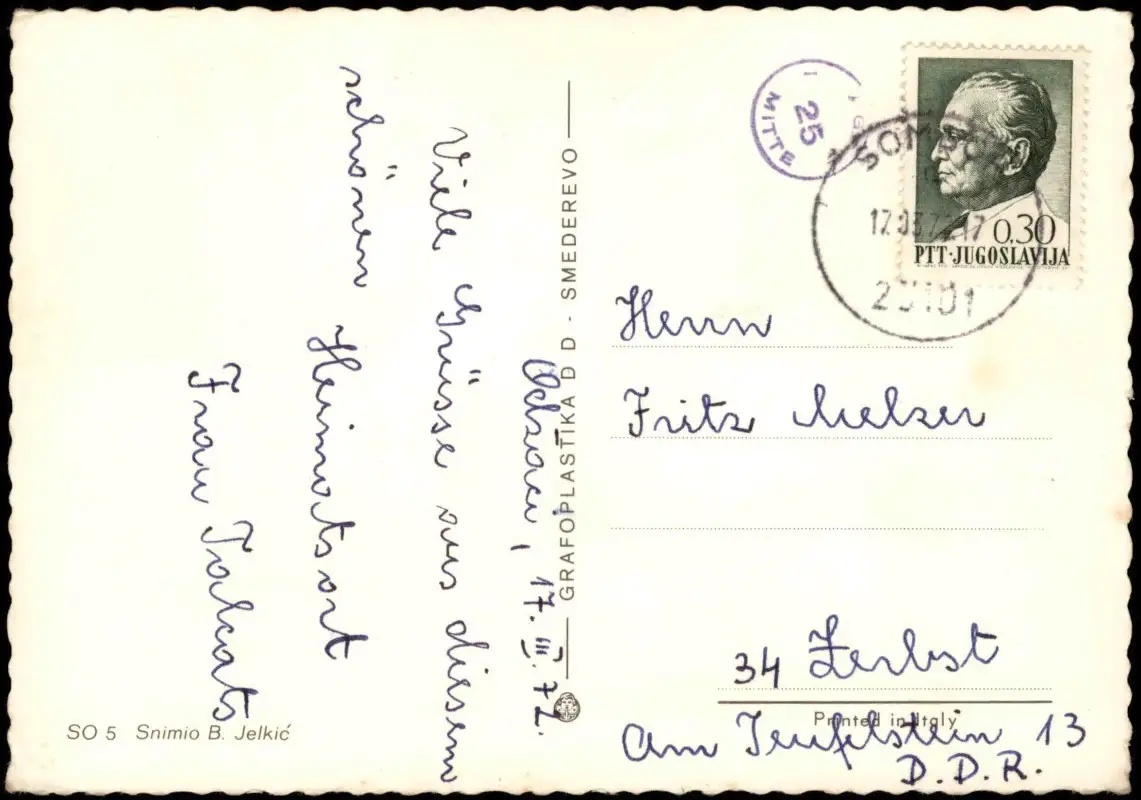 Odzaci, 17. III. 72.
Viele Grüsse aus diesem
schönen Heimatsort
Frau Takats
SO 5 Snimio B. Jelkić
GRAFOPLASTIKA D D - SMEDEREVO
25
MITTE
SOMBOR
17.03.72.17
25101
0,30
PTT·JUGOSLAVIJA
Herrn
Fritz Melzer
34 Zerbst
Printed in Italy
Am Teufelstein 13
D.D.R.